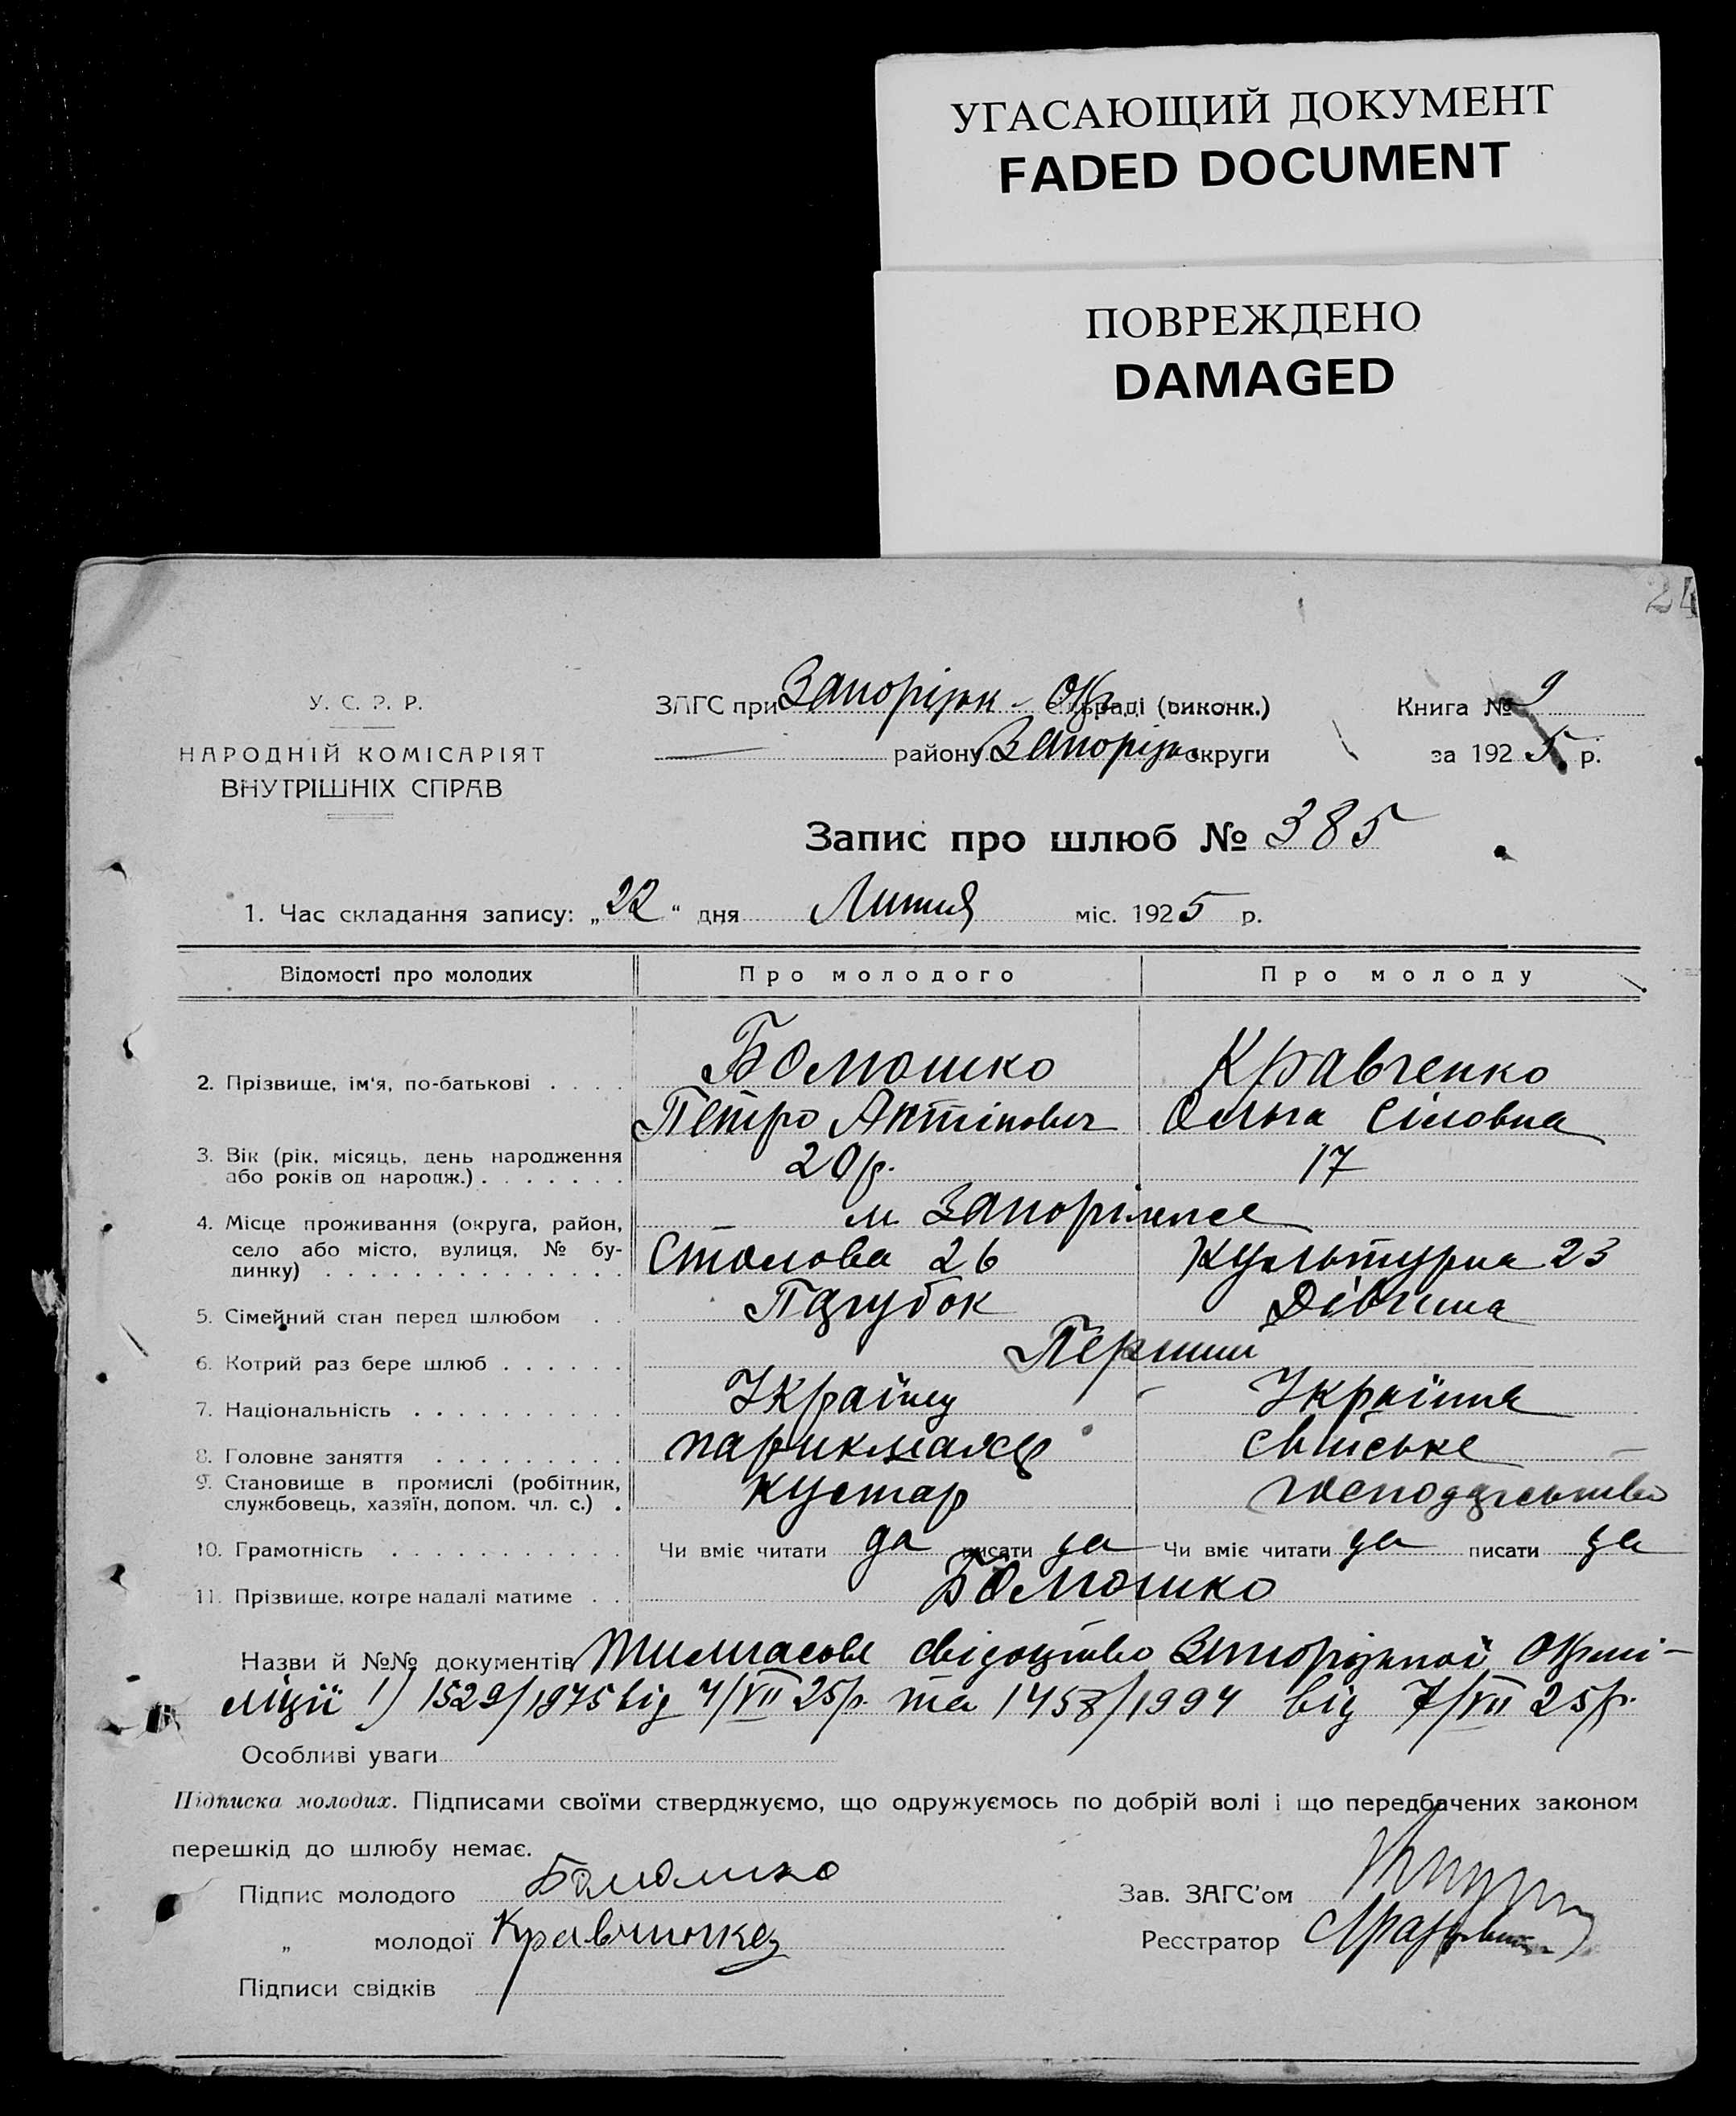 УГАСАЮЩИЙ ДОКУМЕНТ
FADED DOCUMENT
ПОВРЕЖДЕНО
DAMAGED
24
У. С. Р. Р.
НАРОДНІЙ КОМІСАРІЯТ
ВНУТРІШНІХ СПРАВ
ЗАГС при Запоріжж - Окр раді (виконк.)
району Запорізьк округи
Книга № 9
за 1925 р.
Запис про шлюб № 385
1. Час складання запису: „22“ дня Липня міс. 1925 р.
Відомості про молодих Про молодого Про молоду
2. Прізвище, ім'я, по-батькові . . . . Бомошко Кравченко
Петро Антінович Ольга Сіловна
3. Вік (рік, місяць, день народження
або років од народж.) . . . . . . . 20 р. 17
4. Місце проживання (округа, район, м Запоріжжє
село або місто, вулиця, № бу- Столова 26 Культурна 23
динку) . . . . . . . . . . . . . .
5. Сімейний стан перед шлюбом . . Парубок Дівчина
6. Котрий раз бере шлюб . . . . . . Перший
7. Національність . . . . . . . . . . Українц Українка
8. Головне заняття . . . . . . . . . парикмахер
9. Становище в промислі (робітник,
службовець, хазяїн, допом. чл. с.) . Кустар господарство
10. Грамотність . . . . . . . . . . . Чи вміє читати да писати да Чи вміє читати да писати да
11. Прізвище, котре надалі матиме . . Бомошко
Назви й №№ документів Тимчасове свідоцтво Запорізької Окрмі-
ліції 1) 1529/1975 від 4/VII 25 р. та 1458/1994 від 7/VII 25 р.
Особливі уваги
Підписка молодих. Підписами своїми стверджуємо, що одружуємось по добрій волі і що передбачених законом
перешкід до шлюбу немає.
Підпис молодого Бомошко Зав. ЗАГС'ом
„ молодої Реєстратор
Підписи свідків